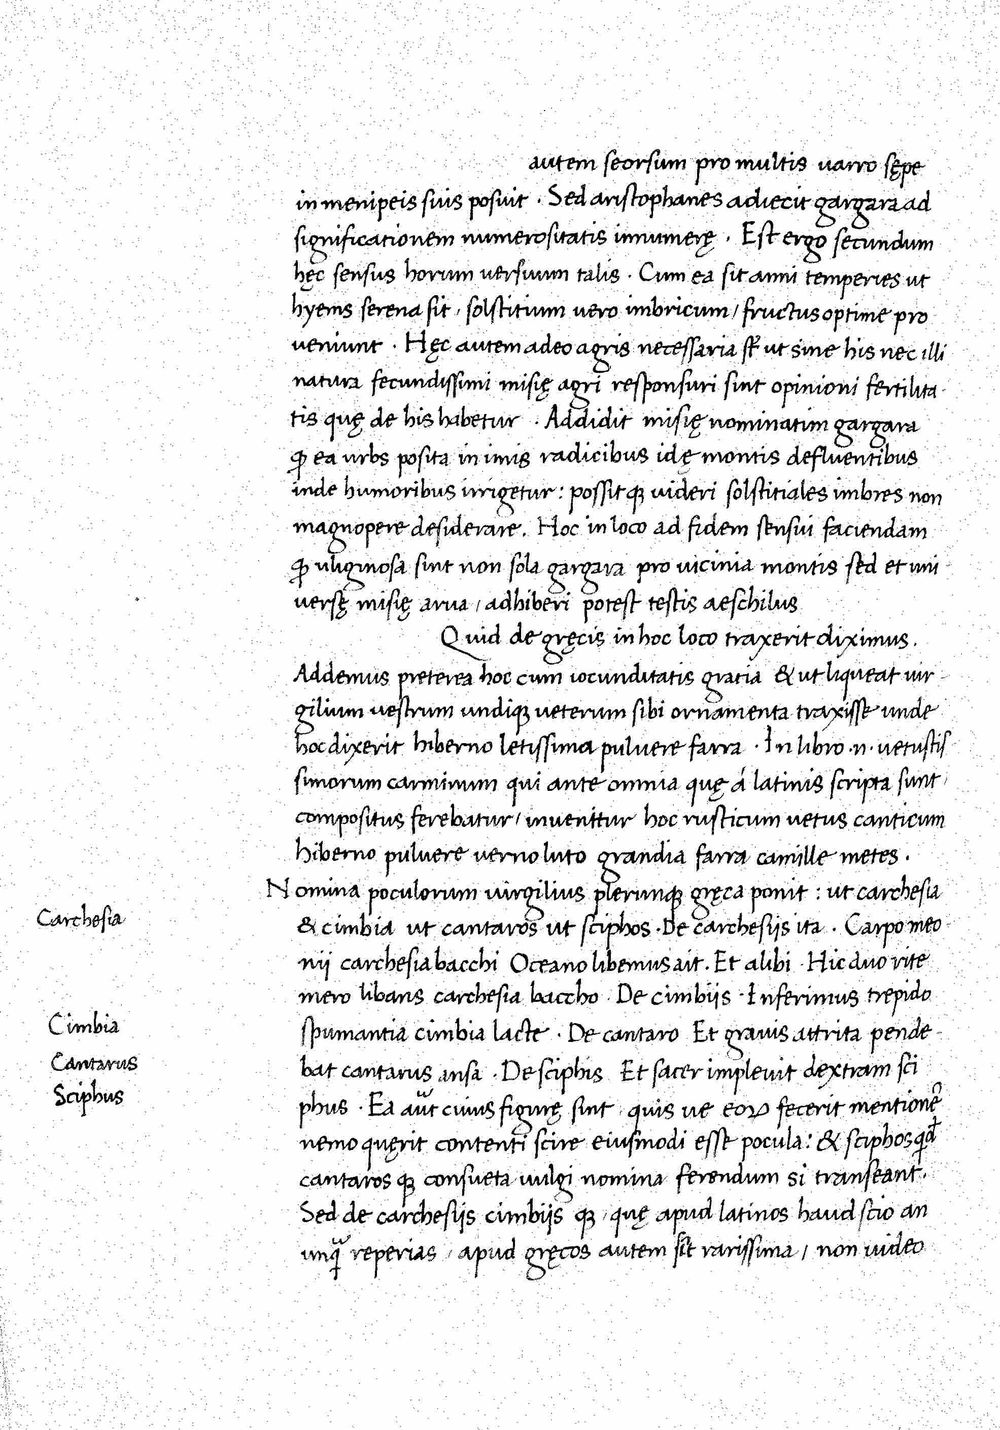 autem seorsum pro multis uarro sępe
in menipeis suis posuit · Sed aristophanes adiecit gargara ad
significationem numerositatis innumerę · Est ergo secundum
hęc sensus horum uersuum talis · Cum ea sit anni temperies ut
hyems serena sit, solstitium uero imbricum / fructus optime pro
ueniunt · Hęc autem adeo agris necessaria st ut sine his nec illi
natura fecundissimi misię agri responsuri sint opinioni fertilita
tis quę de his habetur · Addidit misię nominatim gargara
ꝙ ea urbs posita in imis radicibus idę montis defluentibus
inde humoribus irrigetur : possitqꝫ uideri solstitiales imbres non
magnopere desiderare. Hoc in loco ad fidem sensui faciendam
ꝙ uliginosa sint non sola gargara pro uicinia montis sed et uni
uersę misię arua / adhiberi potest testis aeschilus
Quid de gręcis in hoc loco traxerit diximus.
Addemus preterea hoc cum iocunditatis gratia & ut liqueat uir
gilium uestrum undiqꝫ ueterum sibi ornamenta traxisse unde
hoc dixerit hiberno letissima puluere farra · In libro .n. uetustis
simorum carminum qui ante omnia quę á latinis scripta sunt,
compositus ferebatur / inuenitur hoc rusticum uetus canticum
hiberno puluere uerno luto grandia farra camille metes ·
Nomina poculorum uirgilius plerunqꝫ gręca ponit : ut carchesia
& cimbia ut cantaros ut sciphos · De carchesijs ita . Carpo meo
nij carchesia bacchi Oceano libemus ait. Et alibi · Hic duo rite
mero libans carchesia baccho · De cimbijs · Inferimus trepido
spumantia cimbia lacte · De cantaro Et grauis attrita pende
bat cantarus ansa · De sciphis Et sacer impleuit dextram sci
phus · Ea aut̃ cuius figurę sint, quis ue eoꝝ fecerit mentionẽ
nemo quęrit contenti scire eiusmodi esse pocula: & sciphos qd̃
cantaros qꝫ consueta uulgi nomina ferendum si transeant.
Sed de carchesijs cimbijs qꝫ, quę apud latinos haud scio an
unq̃ reperias / apud gręcos autem sit rarissima / non uideo
Carchesia
Cimbia
Cantarus
Sciphus